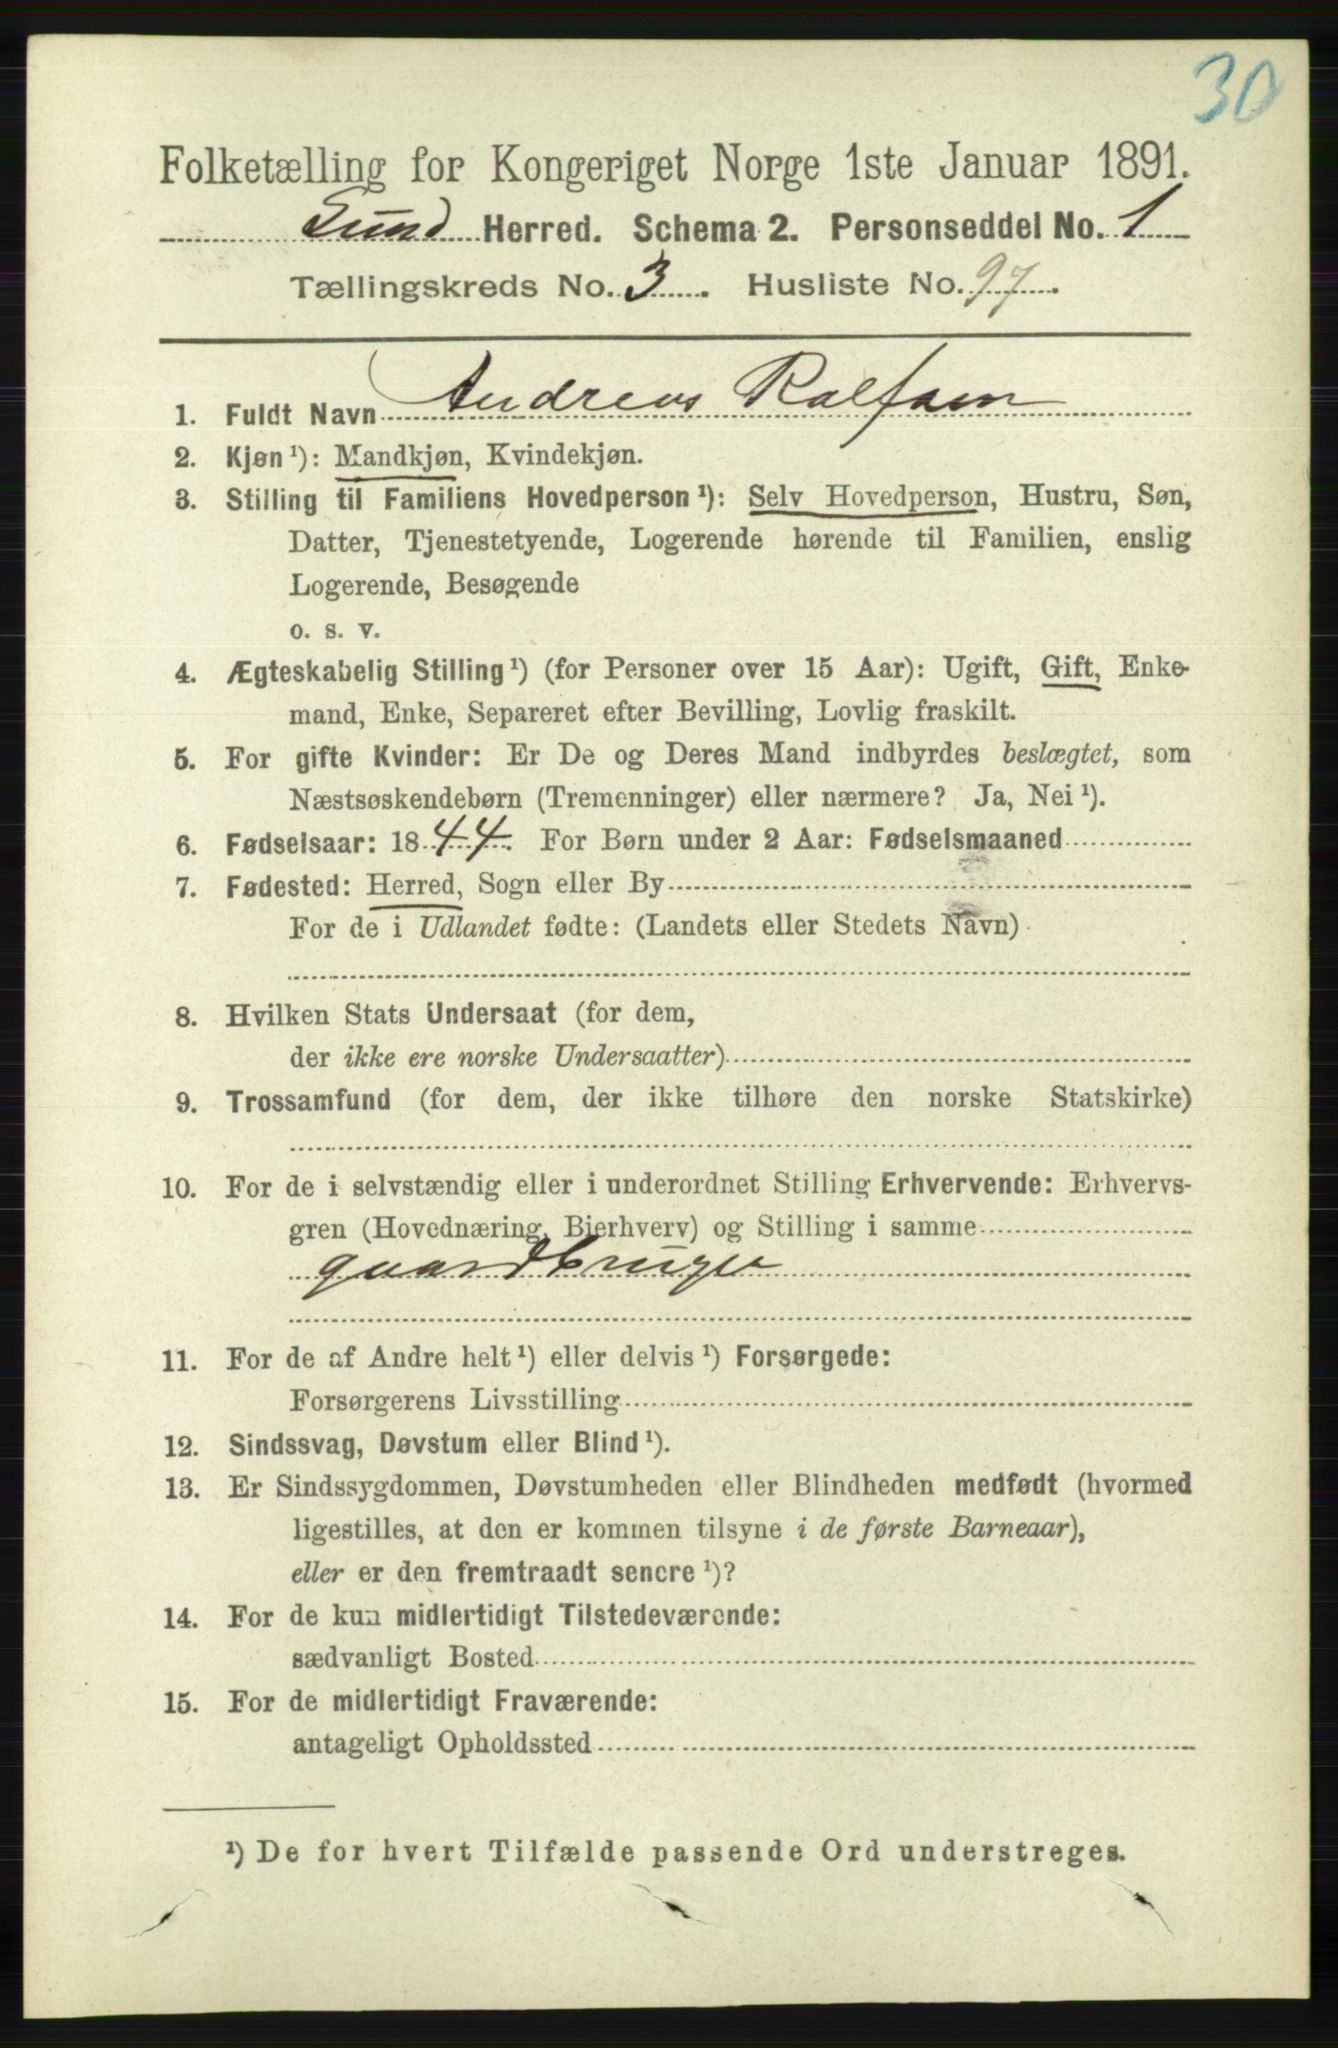 30
Folketælling for Kongeriget Norge 1ste Januar 1891.
Sund Herred. Schema 2. Personseddel No. 1
Tællingskreds No. 3. Husliste No. 97.
1. Fuldt Navn Andreas Rolfsen
2. Kjøn ¹): Mandkjøn, Kvindekjøn.
3. Stilling til Familiens Hovedperson ¹): Selv Hovedperson, Hustru, Søn,
Datter, Tjenestetyende, Logerende hørende til Familien, enslig
Logerende, Besøgende
o. s. v.
4. Ægteskabelig Stilling ¹) (for Personer over 15 Aar): Ugift, Gift, Enke-
mand, Enke, Separeret efter Bevilling, Lovlig fraskilt.
5. For gifte Kvinder: Er De og Deres Mand indbyrdes beslægtet, som
Næstsøskendebørn (Tremenninger) eller nærmere? Ja, Nei ¹).
6. Fødselsaar: 1844. For Børn under 2 Aar: Fødselsmaaned
7. Fødested: Herred, Sogn eller By
For de i Udlandet fødte: (Landets eller Stedets Navn)
8. Hvilken Stats Undersaat (for dem,
der ikke ere norske Undersaatter)
9. Trossamfund (for dem, der ikke tilhøre den norske Statskirke)
10. For de i selvstændig eller i underordnet Stilling Erhvervende: Erhvervs-
gren (Hovednæring, Bierhverv) og Stilling i samme
gaardbruger
11. For de af Andre helt ¹) eller delvis ¹) Forsørgede:
Forsørgerens Livsstilling
12. Sindssvag, Døvstum eller Blind ¹).
13. Er Sindssygdommen, Døvstumheden eller Blindheden medfødt (hvormed
ligestilles, at den er kommen tilsyne i de første Barneaar),
eller er den fremtraadt senere ¹)?
14. For de kun midlertidigt Tilstedeværende:
sædvanligt Bosted
15. For de midlertidigt Fraværende:
antageligt Opholdssted
¹) De for hvert Tilfælde passende Ord understreges.